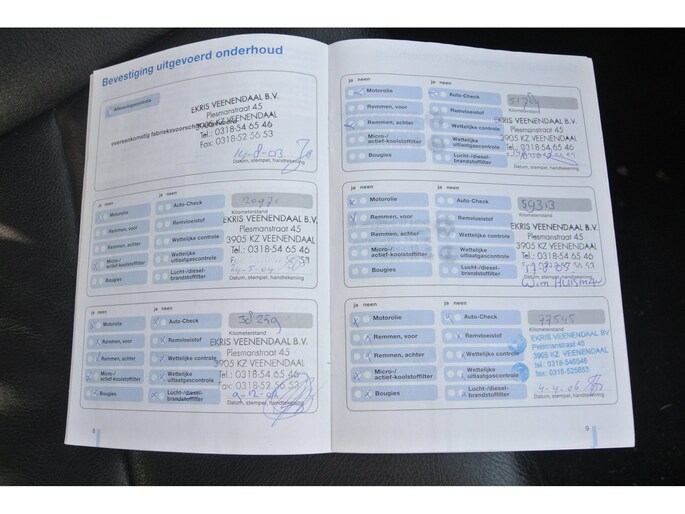 Bevestiging uitgevoerd onderhoud
Afleveringscontrole
EKRIS VEENENDAAL B.V.
Plesmanstraat 45
overeenkomstig fabrieksvoorschrift
3905 KZ VEENENDAAL
Tel.: 0318-54 65 46
Fax: 0318-52 56 53
14-8-03
Datum, stempel, handtekening
ja neen
Motorolie
Remmen, voor
Remmen, achter
Micro-/
actief-koolstoffilter
Bougies
Auto-Check
Remvloeistof
Wettelijke controle
Wettelijke
uitlaatgascontrole
Lucht-/diesel-
brandstoffilter
Kilometerstand
EKRIS VEENENDAAL B.V.
Plesmanstraat 45
3905 KZ VEENENDAAL
Datum, stempel, handtekening
ja neen
Motorolie
Remmen, voor
Remmen, achter
Micro-/
actief-koolstoffilter
Bougies
Auto-Check
Remvloeistof
Wettelijke controle
Wettelijke
uitlaatgascontrole
Lucht-/diesel-
brandstoffilter
38259
Kilometerstand
EKRIS VEENENDAAL B.V.
Plesmanstraat 45
3905 KZ VEENENDAAL
Tel.: 0318-54 65 46
Fax: 0318-52 56 53
Datum, stempel, handtekening
8
ja neen
Motorolie
Remmen, voor
Remmen, achter
Micro-/
actief-koolstoffilter
Bougies
Auto-Check
Remvloeistof
Wettelijke controle
Wettelijke
uitlaatgascontrole
Lucht-/diesel-
brandstoffilter
EKRIS VEENENDAAL B.V.
Plesmanstraat 45
3905 KZ VEENENDAAL
Tel.: 0318-54 65 46
Datum, stempel, handtekening
ja neen
Motorolie
Remmen, voor
Remmen, achter
Micro-/
actief-koolstoffilter
Bougies
Auto-Check
Remvloeistof
Wettelijke controle
Wettelijke
uitlaatgascontrole
Lucht-/diesel-
brandstoffilter
59313
Kilometerstand
EKRIS VEENENDAAL B.V.
Plesmanstraat 45
3905 KZ VEENENDAAL
Tel.: 0318-54 65 46
Wim HUISMAN
ja neen
Motorolie
Remmen, voor
Remmen, achter
Micro-/
actief-koolstoffilter
Bougies
Auto-Check
Remvloeistof
Wettelijke controle
Wettelijke
uitlaatgascontrole
Lucht-/diesel-
brandstoffilter
77545
Kilometerstand
EKRIS VEENENDAAL BV
Plesmanstraat 45
3905 KZ VEENENDAAL
tel: 0318-546546
fax: 0318-525653
4-4-06
Datum, stempel, handtekening
9